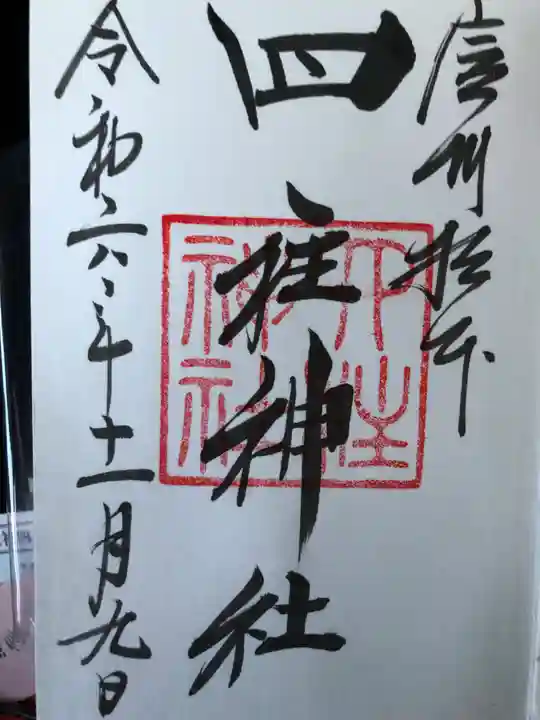 信州松本
四柱神社
神社
令和六年十一月九日